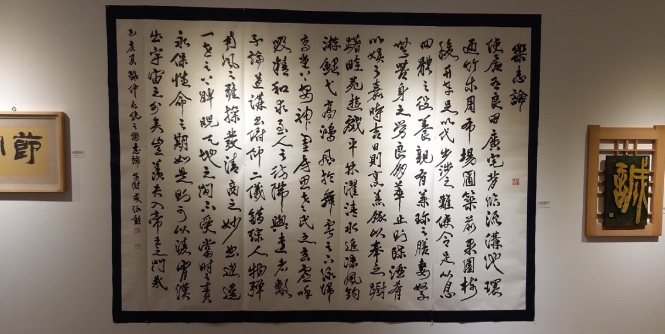 樂志論
使居有良田廣宅背山臨流溝池環
匝竹木周布場圃築前果園樹
後舟車足以代步涉之難使令足以息
四體之役養親有兼珍之膳妻孥
無苦身之勞良朋萃止則陳酒肴
以娛之嘉時吉日則烹羔豚以奉之躕
躇畦苑遊戲平林濯清水追涼風釣
游鯉弋高鴻風於舞雩之下詠歸
高堂之上安神閨房思老氏之玄虛呼
吸精和求至人之彷彿與達者數
子論道講書俯仰二儀錯綜人物彈
南風之雅操發清商之妙曲逍遙
一世之上睥睨天地之間不受當時之責
永保性命之期如是則可以凌霄漢
出宇宙之外矣豈羨夫入帝王之門哉
仲長統之樂志論
誠
節